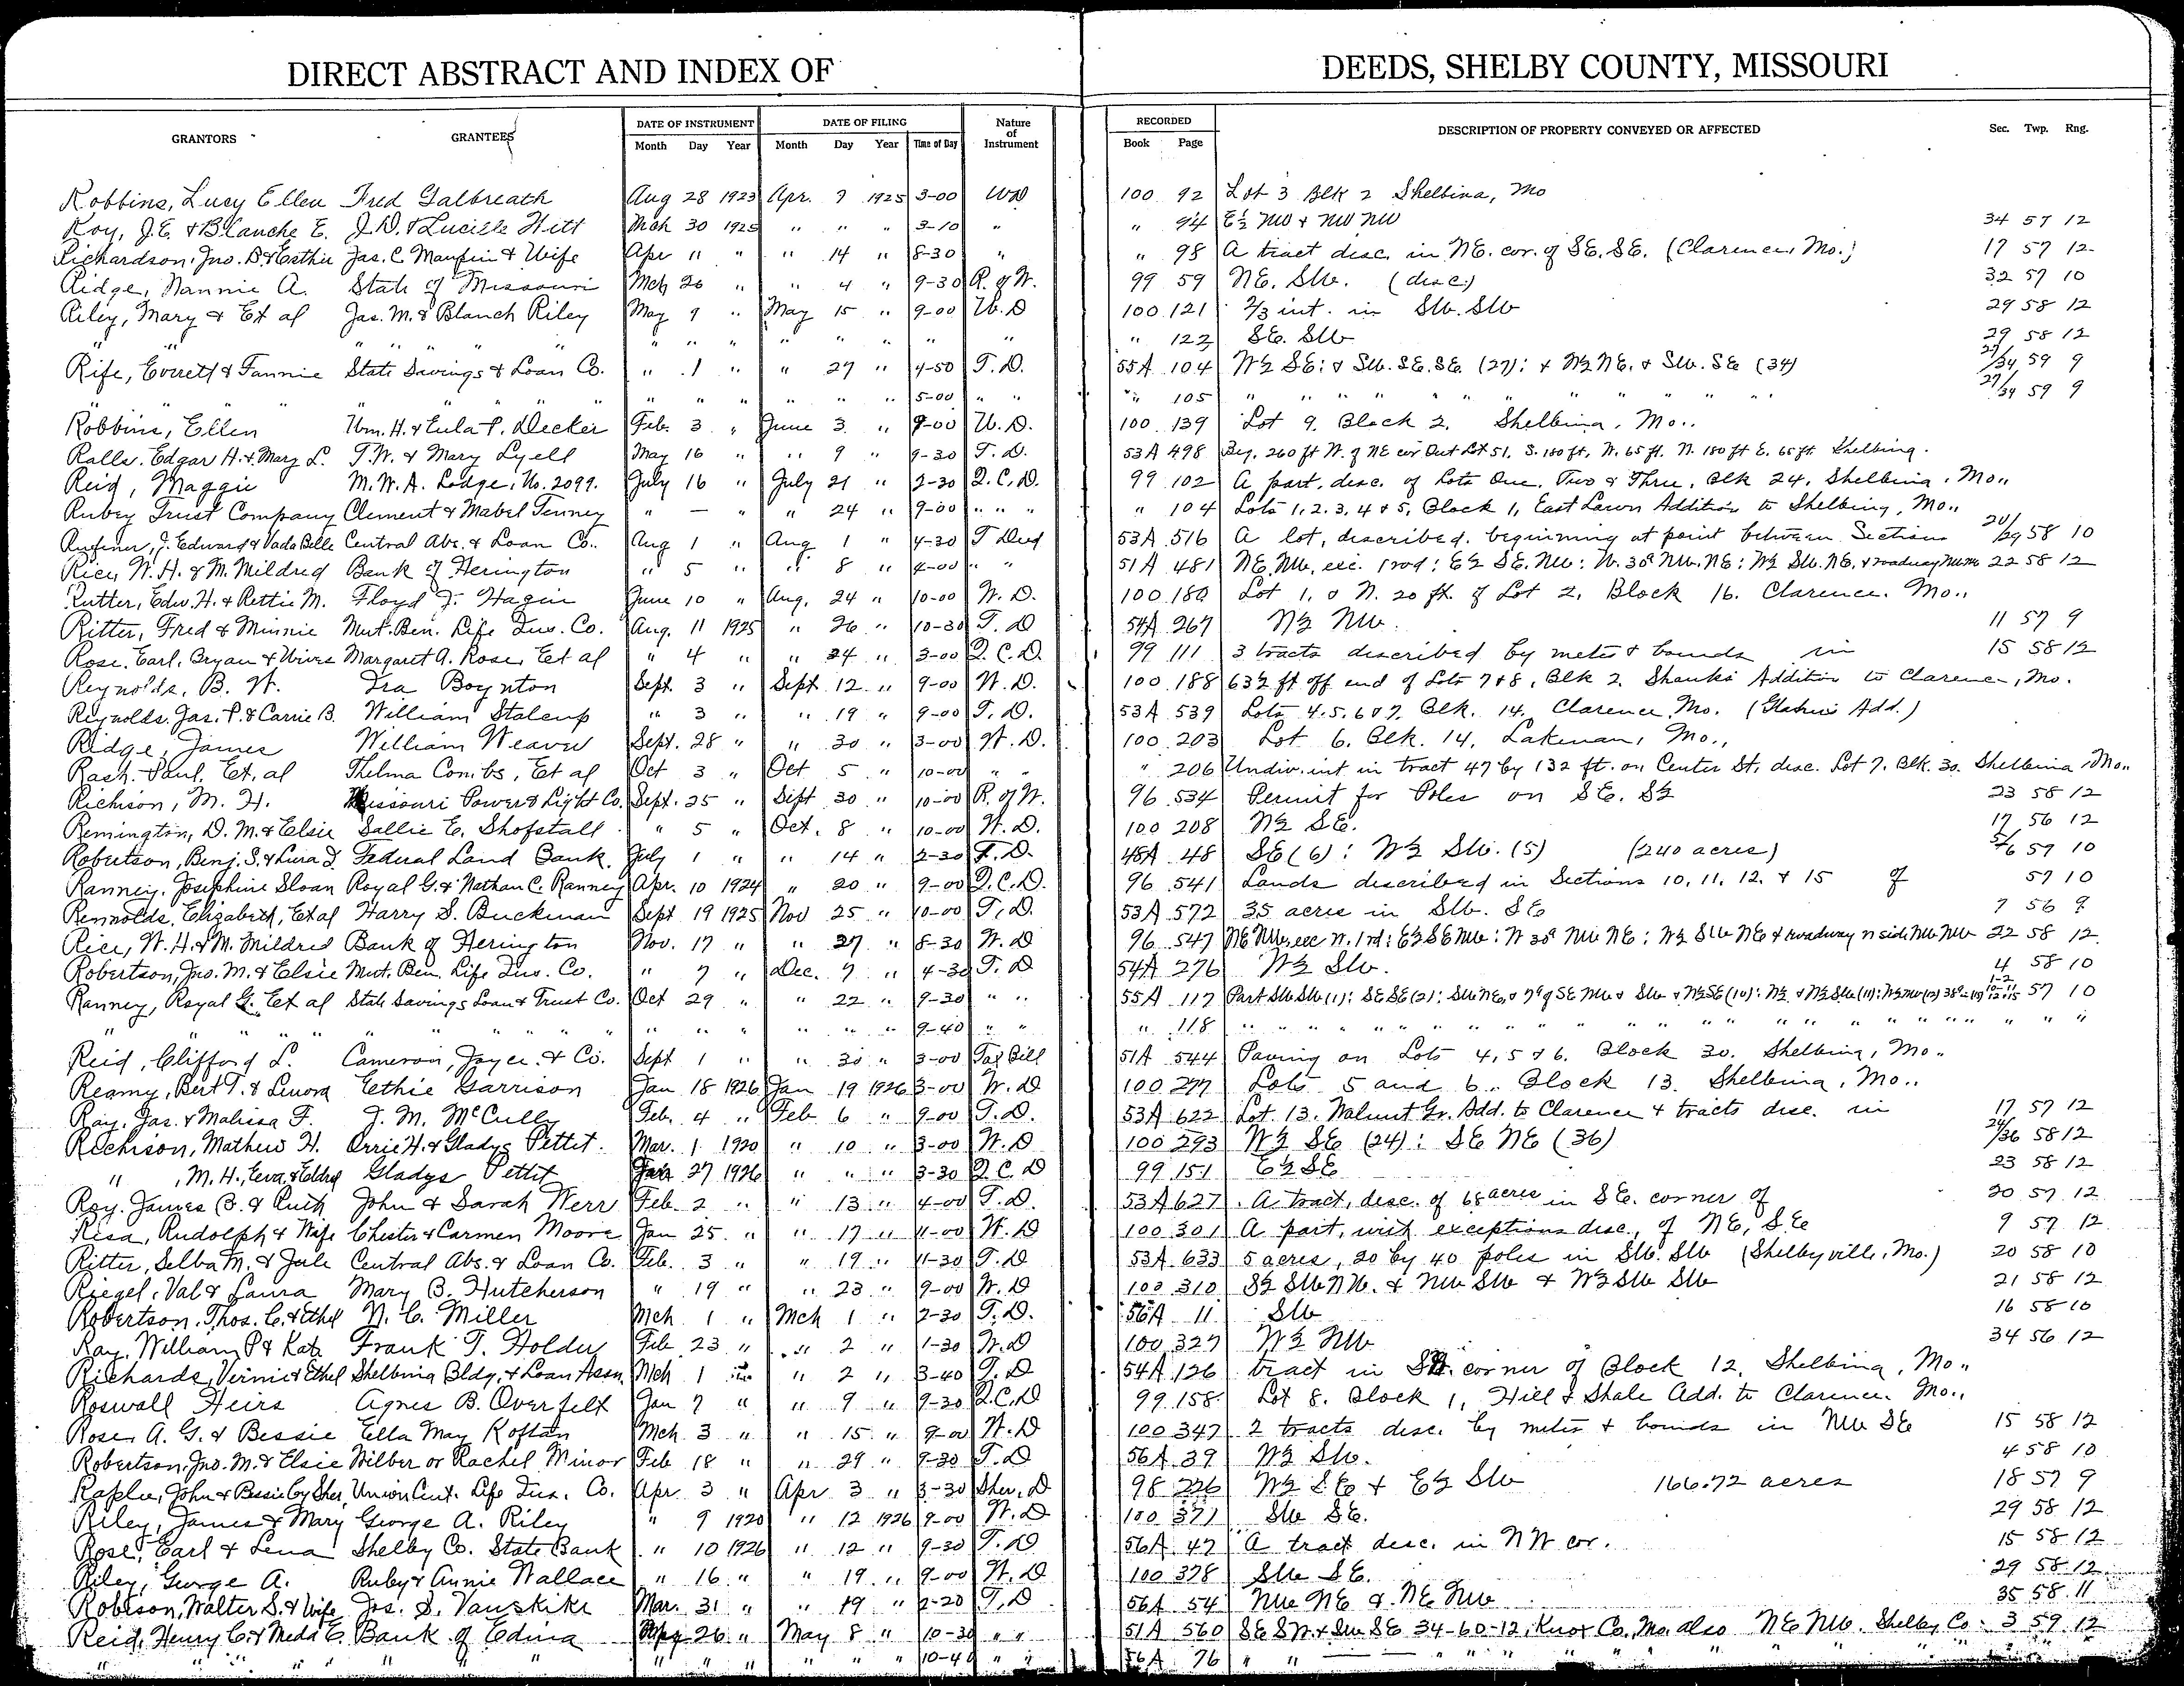 DIRECT ABSTRACT AND INDEX OF DEEDS, SHELBY COUNTY, MISSOURI
GRANTORS GRANTEES DATE OF INSTRUMENT DATE OF FILING Nature of Instrument RECORDED DESCRIPTION OF PROPERTY CONVEYED OR AFFECTED Sec. Twp. Rng.
Month Day Year Month Day Year Time of Day Book Page
Robbins, Lucy Ellen Fred Galbreath Aug 28 1923 Apr. 7 1925 3-00 WD 100 92 Lot 3 Blk 2 Shelbina, Mo
Roy, J.E. & Blanche E. J.D. & Lucille Hitt Mch 30 1925 " " " 3-10 " " 94 E½ NW & NW NW 34 57 12
Richardson, Jno. B & Esther Jas. C. Maupin & Wife Apr 11 " " 14 " 8-30 " " 98 A tract disc. in NE. cor. of SE. SE. (Clarence, Mo.) 17 57 12
Ridge, Nannie A. State of Missouri Mch 26 " " 4 " 9-30 R. of W. 99 59 NE. SW. (disc.) 32 57 10
Riley, Mary & Et al Jas. M. & Blanch Riley May 9 " May 15 " 9-00 W.D 100 121 2/3 int. in SW. SW 29 58 12
" " " " " " " " " " " " " " 122 SE. SW 29 58 12
Rife, Everett & Fannie State Savings & Loan Co. " 1 " " 27 " 4-50 T.D. 55A 104 W½ SE; & SW. SE. SE. (27); & W½ NE. & SW. SE (34) 27/34 59 9
" " " " " " " " " " 5-00 " " " 105 " " " " " " " " " 27/34 59 9
Robbins, Ellen Wm. H. & Eula P. Decker Feb. 3 " June 3 " 9-00 W.D. 100 139 Lot 9. Block 2. Shelbina, Mo..
Ralls. Edgar H. & Mary L. T.W. & Mary Lyell May 16 " " 9 " 9-30 T.D. 53A 498 Beg. 260 ft W. of NE cor Out Lot 51, S. 180 ft, W. 65 ft. N. 180 ft E. 65 ft. Shelbina.
Reid, Maggie M.W.A. Lodge, No. 2099. July 16 " July 21 " 2-30 Q.C.D. 99 102 A part, desc. of Lots One, Two & Three, Blk 24. Shelbina, Mo..
Rubey Trust Company Clement & Mabel Tenney " — " " 24 " 9-00 " " " " 104 Lots 1, 2. 3, 4 & 5, Block 1, East Lawn Addition to Shelbina, Mo..
J. Edward & Vada Belle Central Abs. & Loan Co.. Aug 1 " Aug 1 " 4-30 T Deed 53A 516 A lot, described, beginning at point between Sections 20/29 58 10
Rice, W. H. & M. Mildred Bank of Herington " 5 " " 8 " 4-00 " " 51A 481 NE. NW, exc. 1 rod; E½ SE. NW; W. 30ᵃ NW. NE; W½ SW. NE. & roadway 22 58 12
Rutter, Edw. H. & Rettie M. Floyd J. Hagin June 10 " Aug. 24 " 10-00 W.D. 100 180 Lot 1, & N. 20 ft. of Lot 2, Block 16. Clarence. Mo..
Ritter, Fred & Minnie Mut. Ben. Life Ins. Co. Aug. 11 1925 " 26 " 10-30 T.D 54A 267 W½ NW. 11 57 9
Rose, Earl, Bryan & Wives Margaret A. Rose, Et al " 4 " " 24 " 3-00 Q.C.D. 99 111 3 tracts described by metes & bounds in 15 58 12
Reynolds, B. W. Ira Boynton Sept. 3 " Sept 12 " 9-00 W.D. 100 188 63½ ft off end of Lots 7 & 8, Blk 2. Shanks Addition to Clarence, Mo.
Reynolds. Jas. P. & Carrie B. William Stalcup " 3 " " 19 " 9-00 T.D. 53A 539 Lots 4. 5. 6 & 7. Blk. 14. Clarence, Mo.
Ridge, James William Weaver Sept. 28 " " 30 " 3-00 W.D. 100 203 Lot 6. Blk. 14, Lakenan, Mo..
Rash. Paul. Et. al Thelma Combs, Et al Oct 3 " Oct 5 " 10-00 " " " 206 Undiv. int in tract 47 by 132 ft. on Center St, desc. Lot 7. Blk. 30. Shelbina Mo..
Richison, M. H. Missouri Power & Light Co. Sept. 25 " Sept 30 " 10-00 R. of W. 96 534 Permit for Poles on SE. S½ 23 58 12
Remington, D. M. & Elsie Sallie E. Shofstall " 5 " Oct. 8 " 10-00 W.D. 100 208 W½ SE. 17 56 12
Robertson, Benj. S. & Lura J. Federal Land Bank. July 1 " " 14 " 2-30 T.D. 48A 48 SE (6): W½ SW. (5) (240 acres) 5/6 59 10
Ranney. Josephine Sloan Royal G. & Nathan C. Ranney Apr. 10 1924 " 20 " 9-00 Q.C.D. 96 541 Lands described in Sections 10, 11, 12, & 15 of 57 10
Rennolds. Elizabeth, Et al Harry S. Buckman Sept 19 1925 Nov 25 " 10-00 T.D. 53A 572 35 acres in SW. SE 7 56 9
Rice, W. H. & M. Mildred Bank of Herington Nov. 17 " " 27 " 8-30 W.D 96 547 NE NW, exc N. 1 rd; E½ SE NW; W 30ᵃ NW NE; W½ SW NE & roadway n side NW NW 22 58 12
Robertson, Jno. M. & Elsie Mut. Ben. Life Ins. Co. " 7 " Dec. 7 " 4-30 T.D 54A 276 W½ SW. 4 58 10
Ranney, Royal G. Et al State Savings Loan & Trust Co. Oct 29 " " 22 " 9-30 " " 55A 117 Part SW SW (1): SE SE (2): 57 10
" " " " " " " " " " " " 9-40 " " " 118 " " " " " " " " " " " "
Reid, Clifford L. Cameron, Joyce & Co. Sept 1 " " 30 " 3-00 Tax Bill 51A 544 Paving on Lots 4, 5 & 6. Block 30. Shelbina, Mo..
Reamy, Bert T. & Lenora Ethie Garrison Jan 18 1926 Jan 19 1926 3-00 W.D 100 277 Lots 5 and 6.. Block 13. Shelbina, Mo..
Ray. Jas. & Malissa F. J. M. McCully Feb. 4 " Feb 6 " 9-00 T.D. 53A 622 Lot. 13. Walnut Gr. Add. to Clarence & tracts desc. in 17 57 12
Richison, Mathew H. Orrie H. & Gladys Pettit. Mar. 1 1920 " 10 " 3-00 W.D 100 293 W½ SE (24): SE NE (36) 24/36 58 12
" , M. H., Eva, & Eldred Gladys Pettit Jan 27 1926 " " " 3-30 Q.C.D 99 151 E½ SE 23 58 12
Roy. James B. & Ruth John & Sarah Werr Feb. 2 " " 13 " 4-00 T.D. 53A 627 A tract, desc. of 68 acres in SE. corner of 20 57 12
Risa, Rudolph & Wife Chester & Carmen Moore Jan 25 " " 17 " 11-00 W.D 100 301 A part, with exceptions desc., of NE, SE 9 57 12
Ritter, Selba M. & Jule Central Abs. & Loan Co. Feb. 3 " " 19 " 11-30 T.D 53A 633 5 acres, 20 by 40 poles in SW. SW (Shelbyville, Mo.) 20 58 10
Riegel, Val & Laura Mary B. Hutcherson " 19 " " 23 " 9-00 W.D 100 310 S½ SW NW. & NW SW & W½ SW SW 21 58 12
Robertson. Thos. C. & Ethel N. C. Miller Mch 1 " Mch 1 " 2-30 T.D. 56A 11 SW 16 58 10
Ray, William P & Kate Frank T. Holder Feb 23 " " 2 " 1-30 W.D 100 327 W½ NW 34 56 12
Richards, Vernie & Ethel Shelbina Bldg. & Loan Assn. Mch 1 " " 2 " 3-40 T.D 54A 126 tract in corner of Block 12, Shelbina, Mo..
Roswall Heirs Agnes B. Overfelt Jan 7 " " 9 " 9-30 Q.C.D 99 158 Lot 8. Block 1, Hill & Shale Add. to Clarence. Mo..
Rose, A. G. & Bessie Ella May Koftan Mch 3 " " 15 " 9-00 W.D 100 347 2 tracts desc. by metes & bounds in NW SE 15 58 12
Robertson, Jno. M. & Elsie Wilber or Rachel Minor Feb 18 " " 29 " 9-30 T.D 56A 39 W½ SW. 4 58 10
John & Bessie by Sher, Union Cent. Life Ins. Co. Apr. 3 " Apr 3 " 3-30 Sher. D 98 226 W½ SE & E½ SW 166.72 acres 18 57 9
Riley, James & Mary George A. Riley " 9 1920 " 12 1926 9-00 W.D 100 371 SW SE. 29 58 12
Rose, Earl & Lena Shelby Co. State Bank " 10 1926 " 12 " 9-30 T.D 56A 47 A tract desc. in NW cor. 15 58 12
Riley, George A. Ruby & Annie Wallace " 16 " " 19 " 9-00 W.D 100 378 SW SE. 29 58 12
Robison, Walter S. & Wife Jos. S. Vanskike Mar. 31 " " 19 " 2-20 T.D 56A 54 NW NE & NE NW 35 58 11
Reid, Henry C. & Meda E. Bank of Edina 26 " May 8 " 10-30 " " 51A 560 SE SW & SW SE 34-60-12, Knox Co, Mo. also NE NW. Shelby Co 3 59 12
" " " " " " " " " " " " 10-40 " " 56A 76 " " — — " " " " " " "